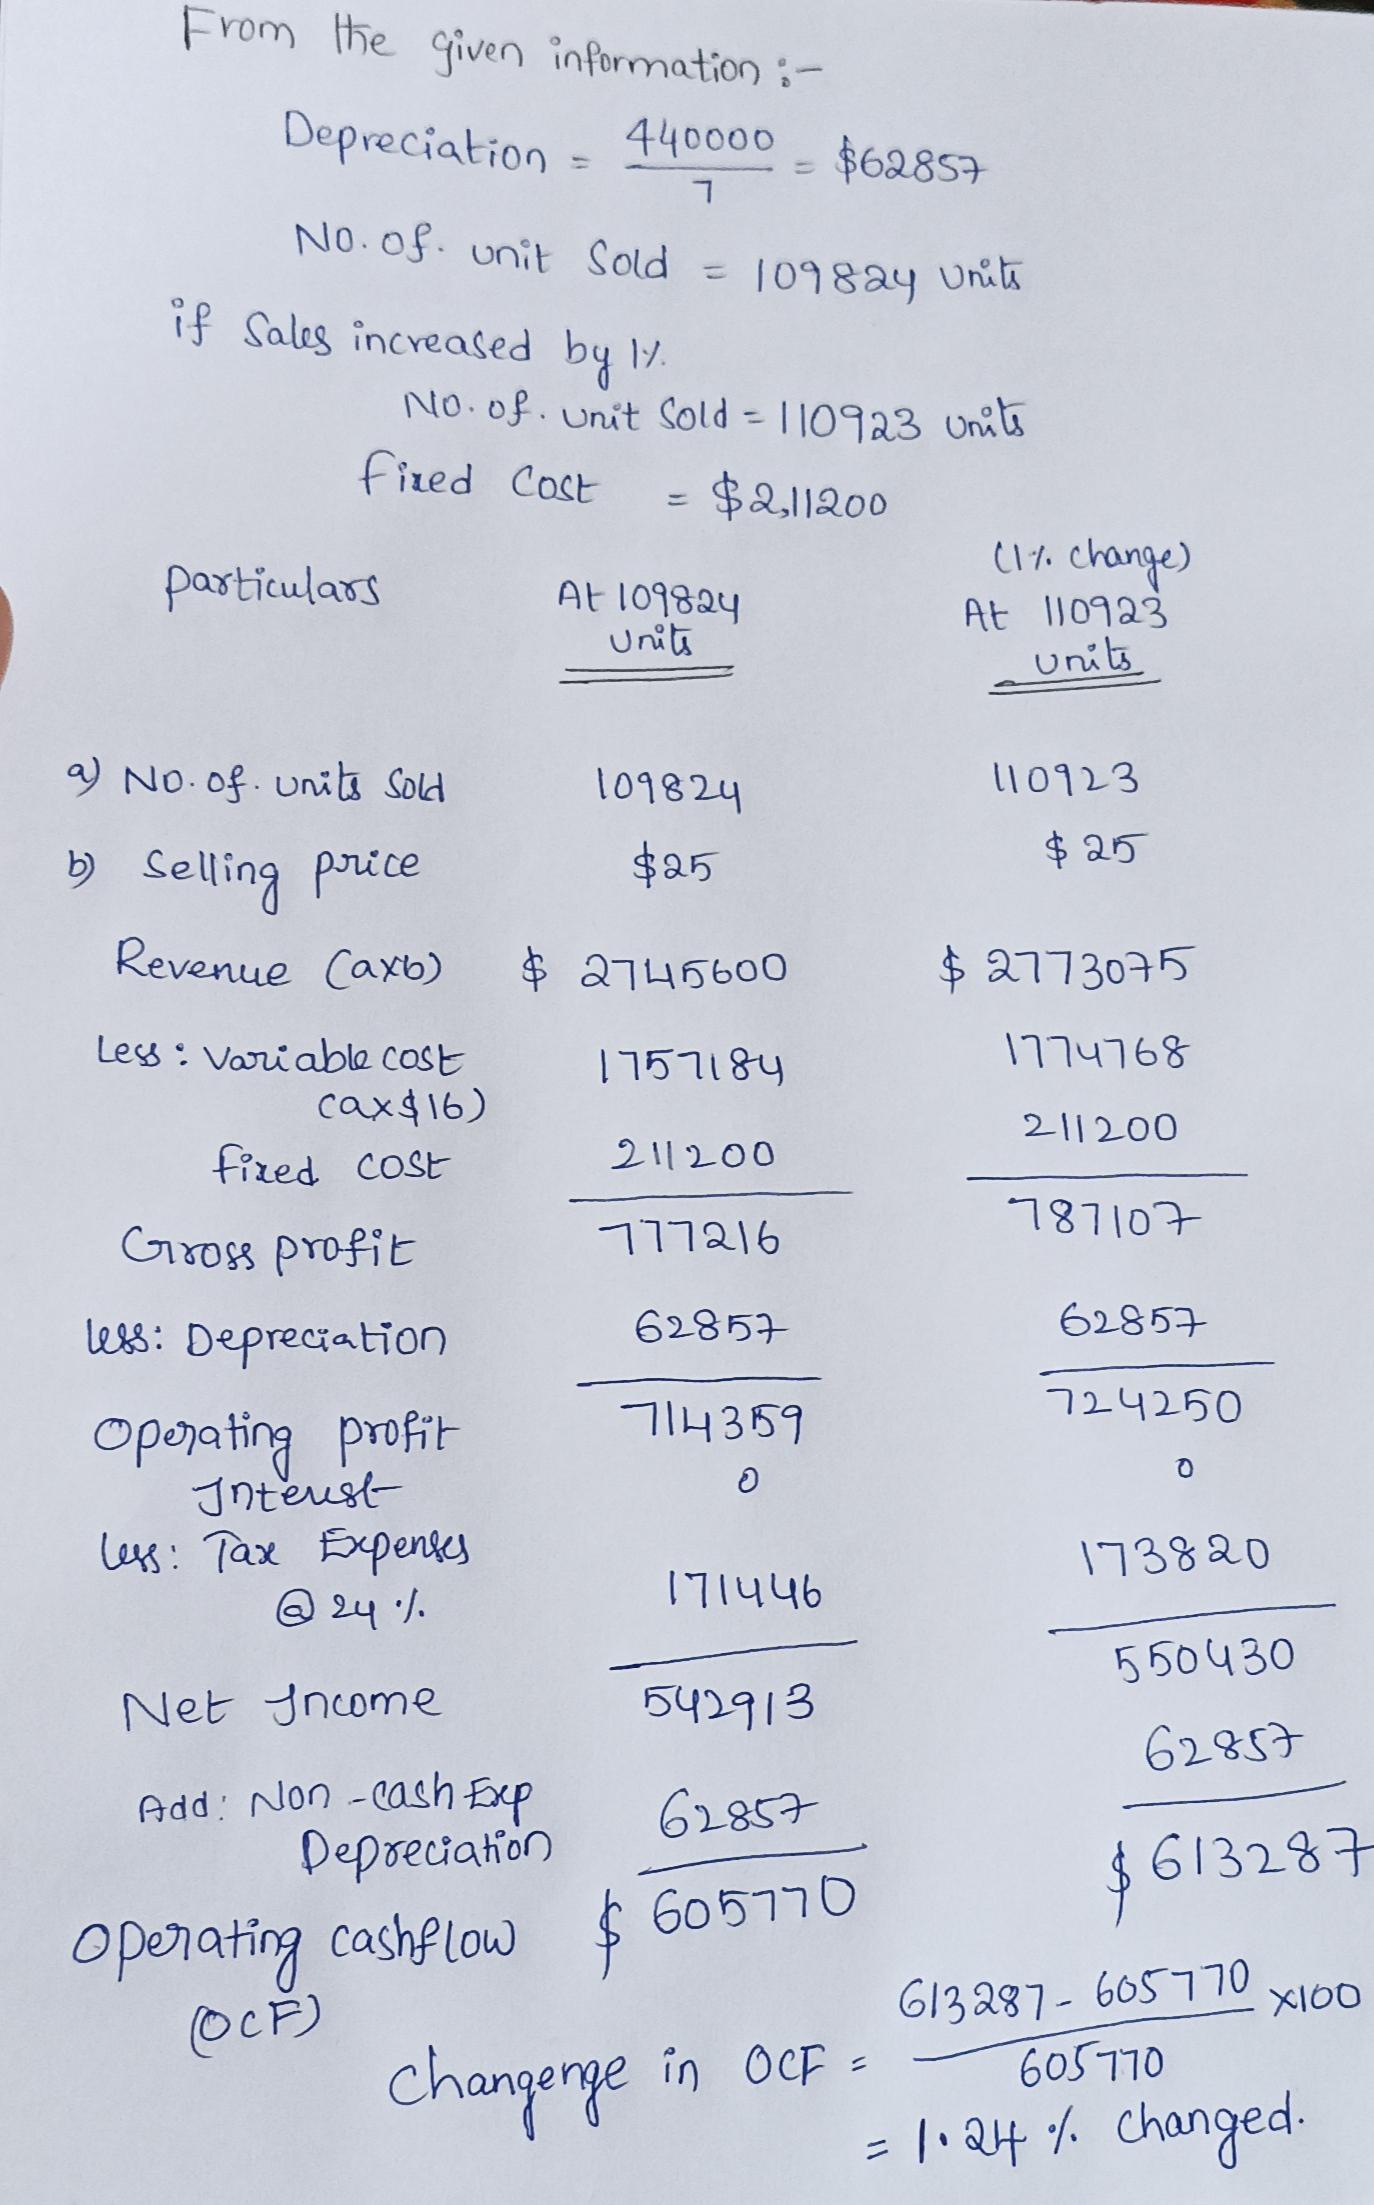 From the given information :-
Depreciation = 440000 / 7 = $62857
No. of. unit Sold = 109824 units
if Sales increased by 1%.
No. of. unit Sold = 110923 units
fixed Cost = $2,11200
particulars At 109824 units (1% change) At 110923 units
a) No. of. units Sold 109824 110923
b) Selling price $25 $25
Revenue (axb) $ 2745600 $ 2773075
Less: Variable cost (ax$16) 1757184 1774768
fixed cost 211200 211200
Gross profit 777216 787107
less: Depreciation 62857 62857
Operating profit 714359 724250
Interest 0 0
less: Tax Expenses @ 24% 171446 173820
Net Income 542913 550430
Add: Non-cash Exp Depreciation 62857 62857
Operating cashflow (OCF) $ 605770 $ 613287
Changenge in OCF = 613287 - 605770 / 605770 x100
= 1.24 % Changed.